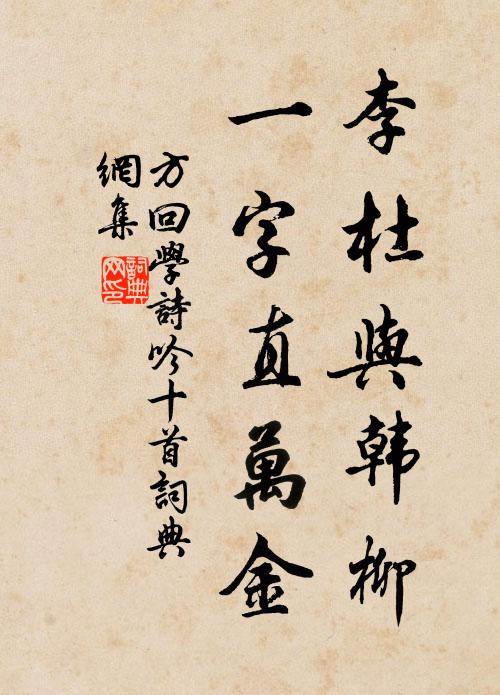 李杜與韓柳
一字直萬金
方回學詩吟十首詞典
網集
詞典網印